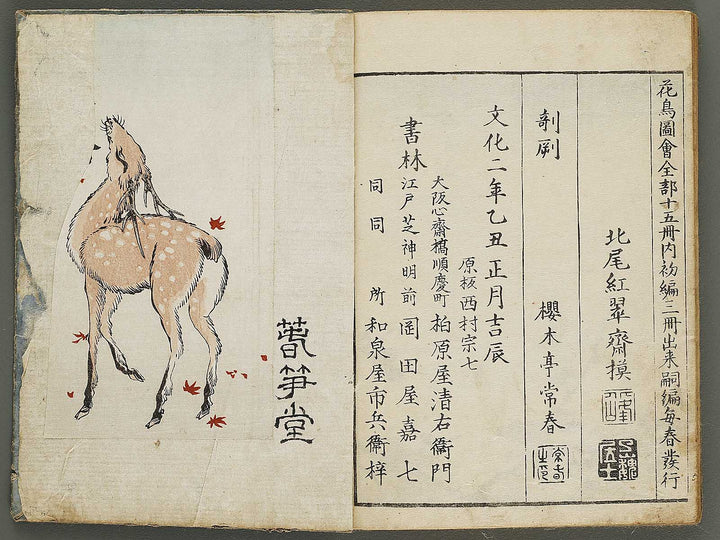 花鳥圖會全部十五冊内初編三冊出来嗣編每春發行
北尾紅翠齋摸
剞劂 櫻木亭常春
文化二年乙丑正月吉辰
原板西村宗七
書林
大阪心齋橋順慶町 柏原屋清右衞門
江戸芝神明前 岡田屋嘉七
同同所 和泉屋市兵衞梓